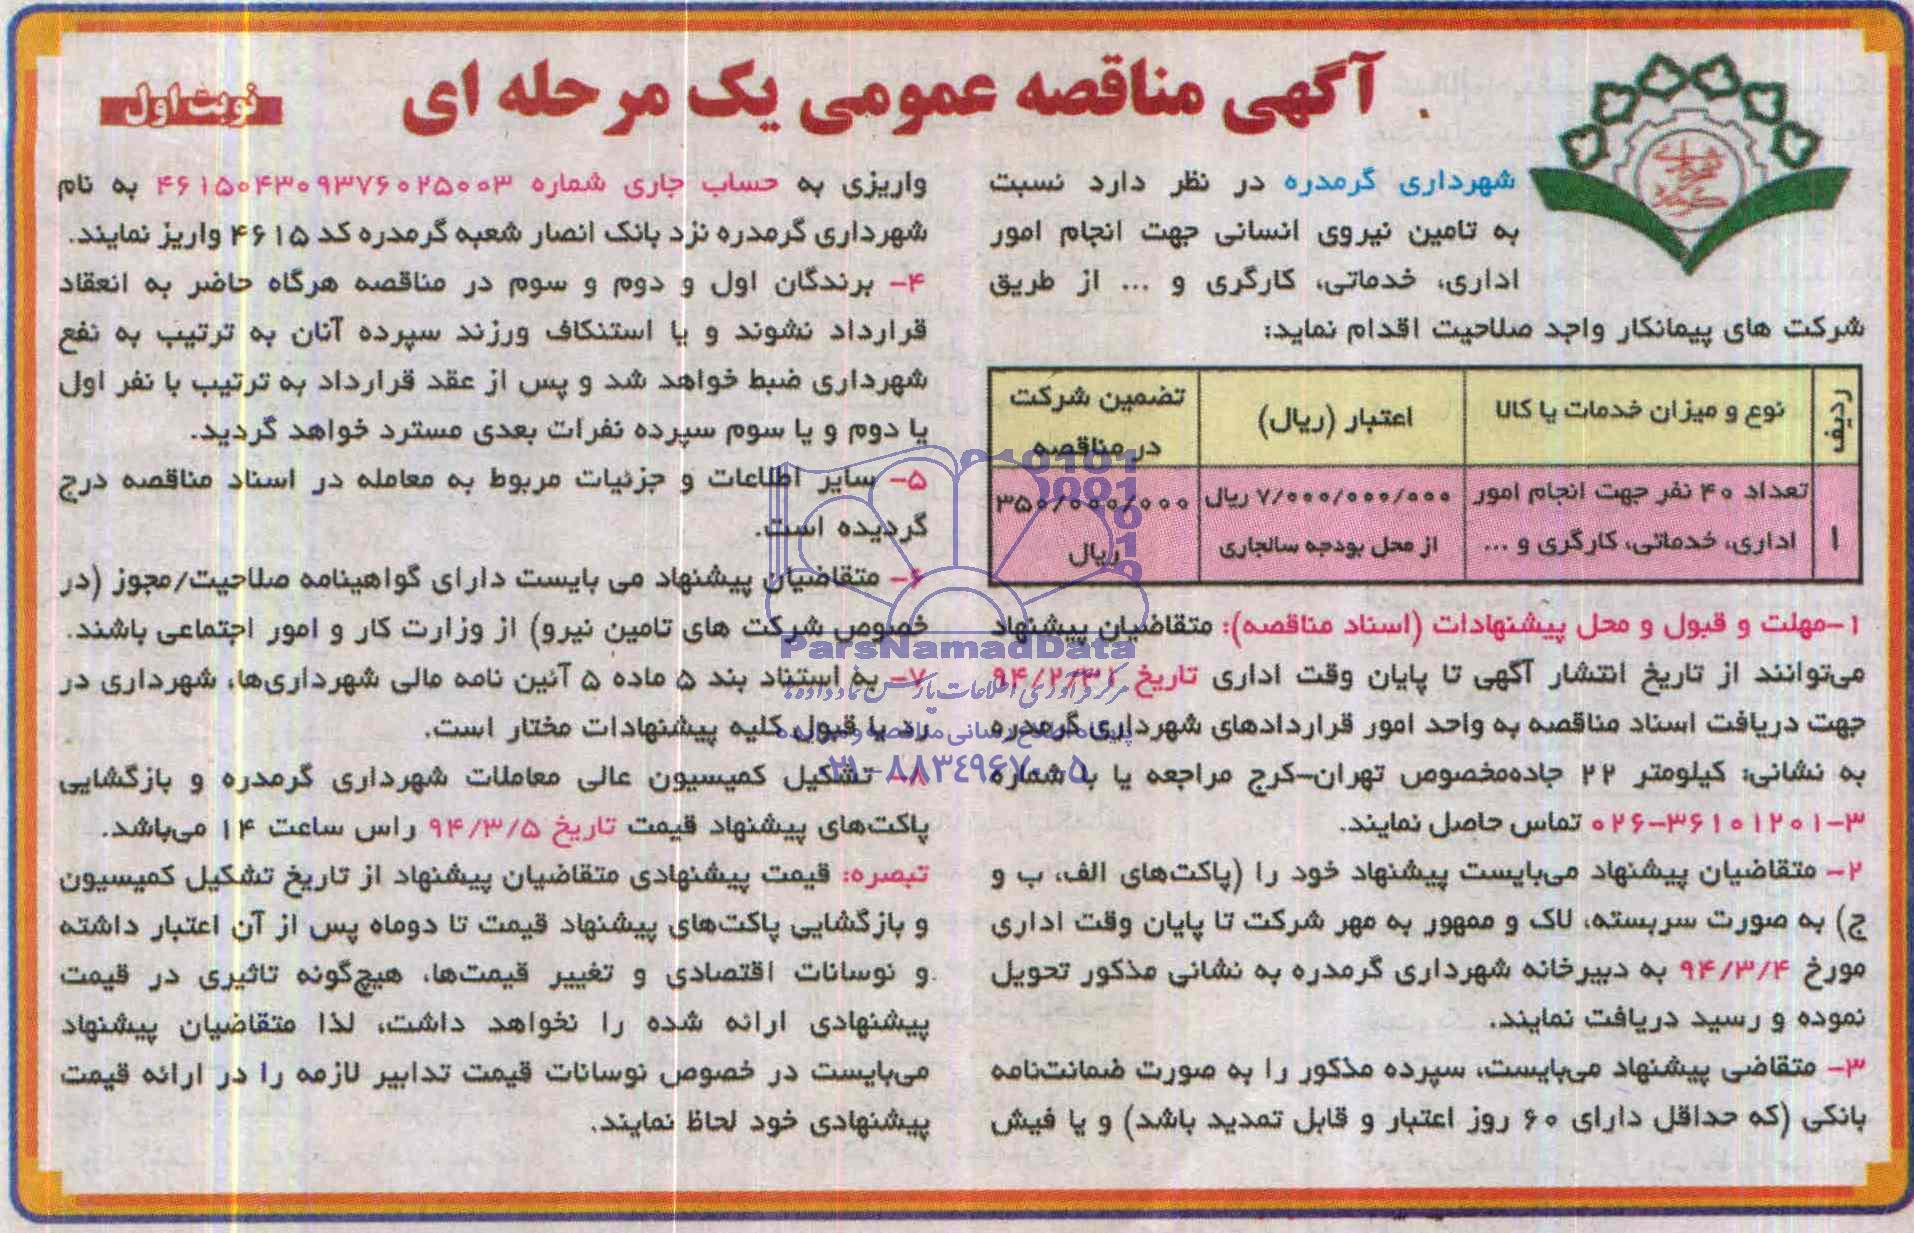 آگهی مناقصه عمومی یک مرحله ای
نوبت اول
شهرداری گرمدره در نظر دارد نسبت
به تامین نیروی انسانی جهت انجام امور
اداری، خدماتی، کارگری و ... از طریق
شرکت های پیمانکار واجد صلاحیت اقدام نماید:
ردیف | نوع و میزان خدمات یا کالا | اعتبار (ریال) | تضمین شرکت در مناقصه
۱ | تعداد ۴۰ نفر جهت انجام امور اداری، خدماتی، کارگری و ... | ۷/۰۰۰/۰۰۰/۰۰۰ ریال از محل بودجه سالجاری | ۳۵۰/۰۰۰/۰۰۰ ریال
۱-مهلت و قبول و محل پیشنهادات (اسناد مناقصه): متقاضیان پیشنهاد
می‌توانند از تاریخ انتشار آگهی تا پایان وقت اداری تاریخ ۹۴/۲/۳۱
جهت دریافت اسناد مناقصه به واحد امور قراردادهای شهرداری گرمدره
به نشانی: کیلومتر ۲۲ جاده‌مخصوص تهران-کرج مراجعه یا با شماره
۰۲۶-۳۶۱۰۱۲۰۱-۳ تماس حاصل نمایند.
۲- متقاضیان پیشنهاد می‌بایست پیشنهاد خود را (پاکت‌های الف، ب و
ج) به صورت سربسته، لاک و ممهور به مهر شرکت تا پایان وقت اداری
مورخ ۹۴/۳/۴ به دبیرخانه شهرداری گرمدره به نشانی مذکور تحویل
نموده و رسید دریافت نمایند.
۳- متقاضی پیشنهاد می‌بایست، سپرده مذکور را به صورت ضمانت‌نامه
بانکی (که حداقل دارای ۶۰ روز اعتبار و قابل تمدید باشد) و یا فیش
واریزی به حساب جاری شماره ۴۶۱۵۰۴۳۰۹۳۷۶۰۲۵۰۰۳ به نام
شهرداری گرمدره نزد بانک انصار شعبه گرمدره کد ۴۶۱۵ واریز نمایند.
۴- برندگان اول و دوم و سوم در مناقصه هرگاه حاضر به انعقاد
قرارداد نشوند و یا استنکاف ورزند سپرده آنان به ترتیب به نفع
شهرداری ضبط خواهد شد و پس از عقد قرارداد به ترتیب با نفر اول
یا دوم و یا سوم سپرده نفرات بعدی مسترد خواهد گردید.
۵- سایر اطلاعات و جزئیات مربوط به معامله در اسناد مناقصه درج
گردیده است.
۶- متقاضیان پیشنهاد می بایست دارای گواهینامه صلاحیت/مجوز (در
خصوص شرکت های تامین نیرو) از وزارت کار و امور اجتماعی باشند.
۷- به استناد بند ۵ ماده ۵ آئین نامه مالی شهرداری‌ها، شهرداری در
رد یا قبول کلیه پیشنهادات مختار است.
۸- تشکیل کمیسیون عالی معاملات شهرداری گرمدره و بازگشایی
پاکت‌های پیشنهاد قیمت تاریخ ۹۴/۳/۵ راس ساعت ۱۴ می‌باشد.
تبصره: قیمت پیشنهادی متقاضیان پیشنهاد از تاریخ تشکیل کمیسیون
و بازگشایی پاکت‌های پیشنهاد قیمت تا دوماه پس از آن اعتبار داشته
و نوسانات اقتصادی و تغییر قیمت‌ها، هیچ‌گونه تاثیری در قیمت
پیشنهادی ارائه شده را نخواهد داشت، لذا متقاضیان پیشنهاد
می‌بایست در خصوص نوسانات قیمت تدابیر لازمه را در ارائه قیمت
پیشنهادی خود لحاظ نمایند.
ParsNamadData
مرکز فرآوری اطلاعات پارس نماد داده ها
۰۲۱-۸۸۳۴۹۶۷۰-۵